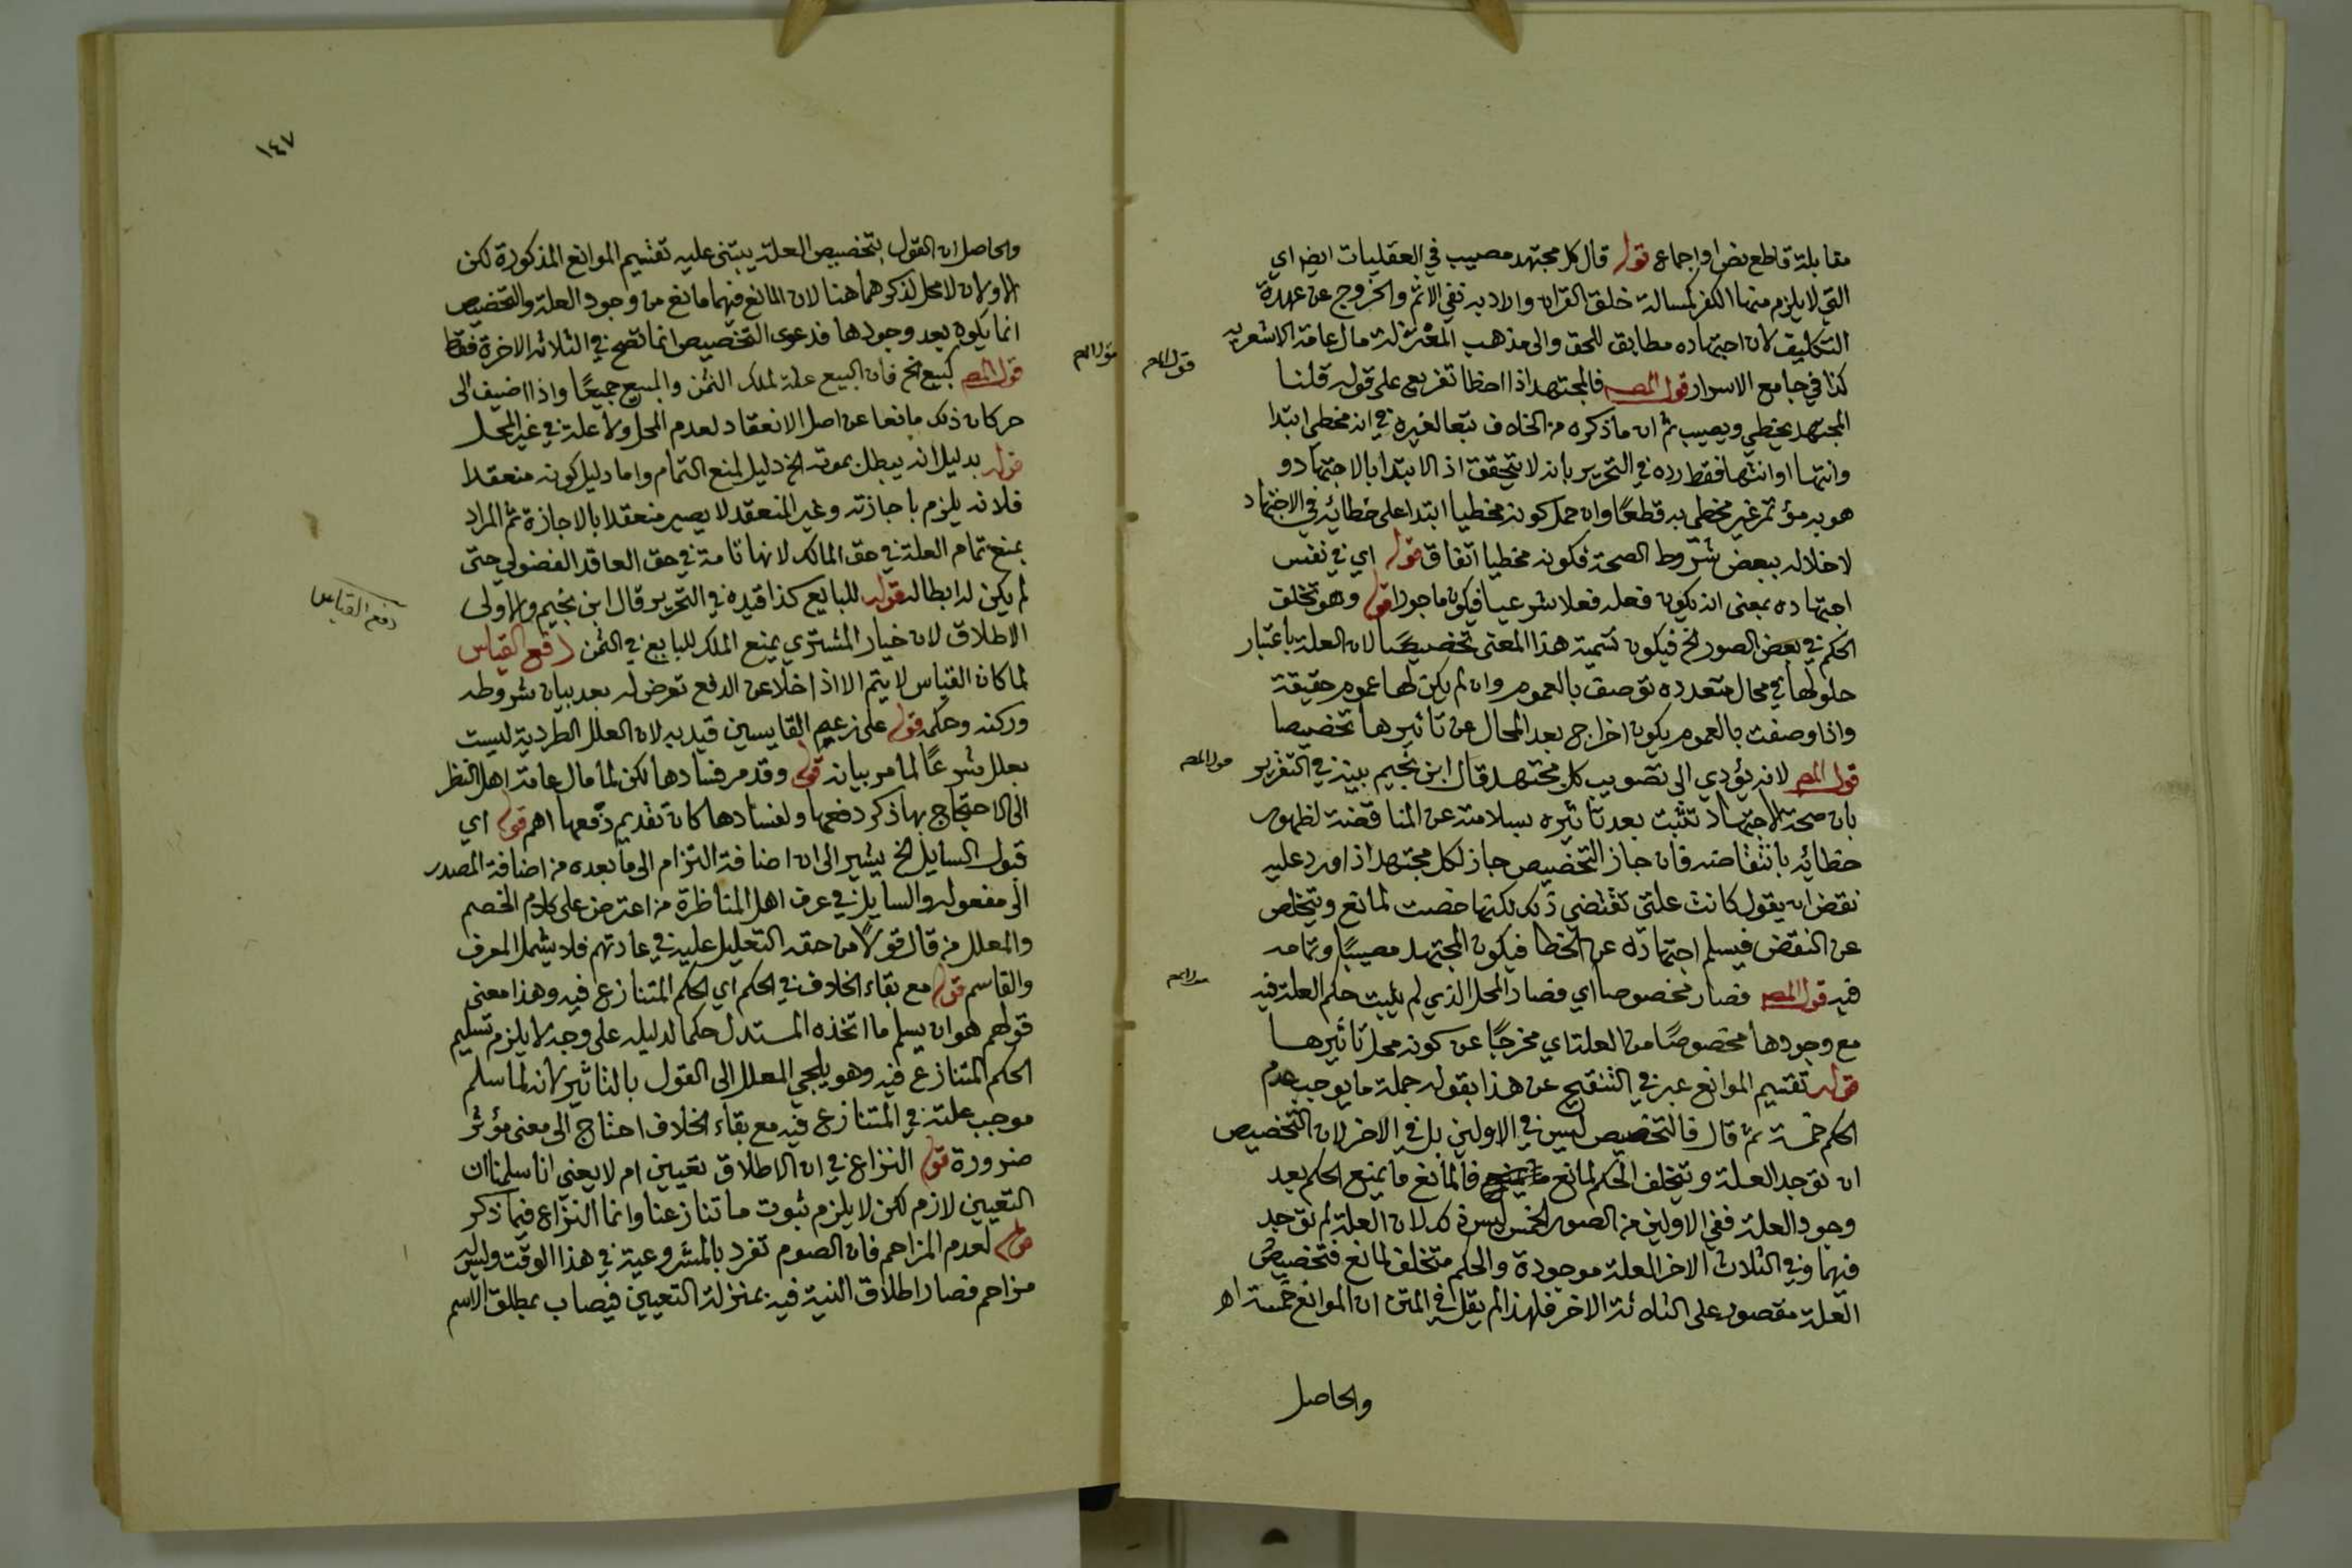 مقابلة قاطع نص او اجماع قوله قال كل مجتهد مصيب في العقليات ايضا اي
التي لا يلزم منها الكفر كمسالة خلق القران والاد به نفي الاثم والخروج عن عهدة
التكليف لان اجتهاده مطابق للحق والى مذهب المعتزلة مال عامة الاشعرية
قول المص
كذا في جامع الاسرار قول المص فالمجتهد اذا اخطا تفريع على قوله قلنا
المجتهد يخطي ويصيب ثم ان ما ذكره من الخلاف تبعا لغيره في انه مخطي ابتدا
وانتها او انتها فقط رده في التحرير بانه لا يتحقق اذ الابتدا بالاجتهاد و
هو به مؤتمر غير مخطي به قطعًا وان حمل كونه مخطيا ابتدا على خطائه في الاجتهاد
لاخلاله ببعض شروط الصحة فكونه مخطيا اتفاق قوله اي في نفس
اجتهاده بمعنى انه يكون فعله فعلا شرعيا فيكون ماجورا قوله وهو تخلف
الحكم في بعض الصور الخ فيكون تسمية هذا المعنى تخصيصًا لان العلة باعتبار
حلولها في محال متعدده توصف بالعموم وان لم يكن لها عموم حقيقة
واذا وصفت بالعموم يكون اخراج بعد المحال عن تاثيرها تخصيصا
قول المص لانه يؤدي الى تصويب كل مجتهد قال ابن نجيم بينه في التقرير
قول المص
بان صحة الاجتهاد تثبت بعد تاثيره بسلامته عن المناقضة لظهور
خطائه بانتقاضه فان جاز التخصيص جاز لكل مجتهد اذا اورد عليه
نقض ان يقول كانت علتي تقتضي ذلك لكنها خصت لمانع ويتخلص
عن النقض فيسلم اجتهاده عن الخطا فيكون المجتهد مصيبًا وتمامه
فيه قول المص فصار مخصوصا اي فصار المحل الذي لم يثبت حكم العلة فيه
قول المص
مع وجودها مخصوصًا من العلة اي مخرجًا عن كونه محل تاثيرها
قوله تقسيم الموانع عبر في التنقيح عن هذا بقوله جملة ما يوجب عدم
الحكم خمسة ثم قال فالتخصيص ليس في الاولين بل في الاخر لان التخصيص
ان توجد العلة ويتخلف الحكم لمانع فالمانع ما يمنع الحكم بعد
وجود العلة ففي الاولين من الصور الخمس ليس كذلك لان العلة لم توجد
فيهما وفي الثلاث الاخر العلة موجودة والحكم متخلف لمانع فتخصيص
العلة مقصور على الثلاثة الاخر فلهذا لم يقل في المتن ان الموانع خمسة اهـ
والحاصل
١٤٧
والحاصل ان القول بتخصيص العلة يبتنى عليه تقسيم الموانع المذكورة لكن
الاولان لا محل لذكرهما هنا لان المانع فيهما مانع من وجود العلة والتخصيص
انما يكون بعد وجودها فدعوى التخصيص انما تصح في الثلاثة الاخرة فقط
قول المص
قول المص كبيع الخ فان البيع علة لملك الثمن والمبيع جميعًا واذا اضيف الى
حر كان ذلك مانعا عن اصل الانعقاد لعدم المحل ولا علة في غير المحل
قوله بدليل انه يبطل بموته الخ دليل لمنع التمام واما دليل كونه منعقدا
فلانه يلزم باجازته وغير المنعقد لا يصير منعقدا بالاجازة ثم المراد
بمنع تمام العلة في حق المالك لانها تامة في حق العاقد الفضولي حتى
لم يكن له ابطاله قوله للبايع كذا قيده في التحرير قال ابن نجيم والاولى
دفع القياس
الاطلاق لان خيار المشتري يمنع الملك للبايع في الثمن دفع القياس
لما كان القياس لا يتم الا اذا خلا عن الدفع تعرض له بعد بيان شروطه
وركنه وحكمه قوله على زعم القايسين قيد به لان العلل الطردية ليست
بعلل شرعًا لما مر بيانه قوله وقد مر فسادها لكن لما مال عامة اهل النظر
الى الاحتجاج بها ذكر دفعها ولفسادها كان تقديم دفعها اهم قوله اي
قبول السايل الخ يشير الى ان اضافة التزام الى ما بعده من اضافة المصدر
الى مفعوله والسايل في عرف اهل المناظرة من اعترض على كلام الخصم
والمعلل من قال قولًا من حقه التعليل عليه في عادتهم فلا يشمل المعرف
والقاسم قوله مع بقاء الخلاف في الحكم اي الحكم المتنازع فيه وهذا معنى
قولهم هو ان يسلم ما اتخذه المستدل حكما لدليله على وجه لا يلزم تسليم
الحكم المتنازع فيه وهو يلجي المعلل الى القول بالتاثير لانه لما سلم
موجب علته في المتنازع فيه مع بقاء الخلاف احتاج الى معنى مؤثر
ضرورة قوله النزاع في ان الاطلاق تعيين ام لا يعني انا سلمنا ان
التعيين لازم لكن لا يلزم ثبوت ما تنازعنا وانما النزاع فيما ذكر
قوله لعدم المزاحم فان الصوم تفرد بالمشروعية في هذا الوقت وليس له
مزاحم فصار اطلاق النية فيه بمنزلة التعيين فيصاب بمطلق الاسم